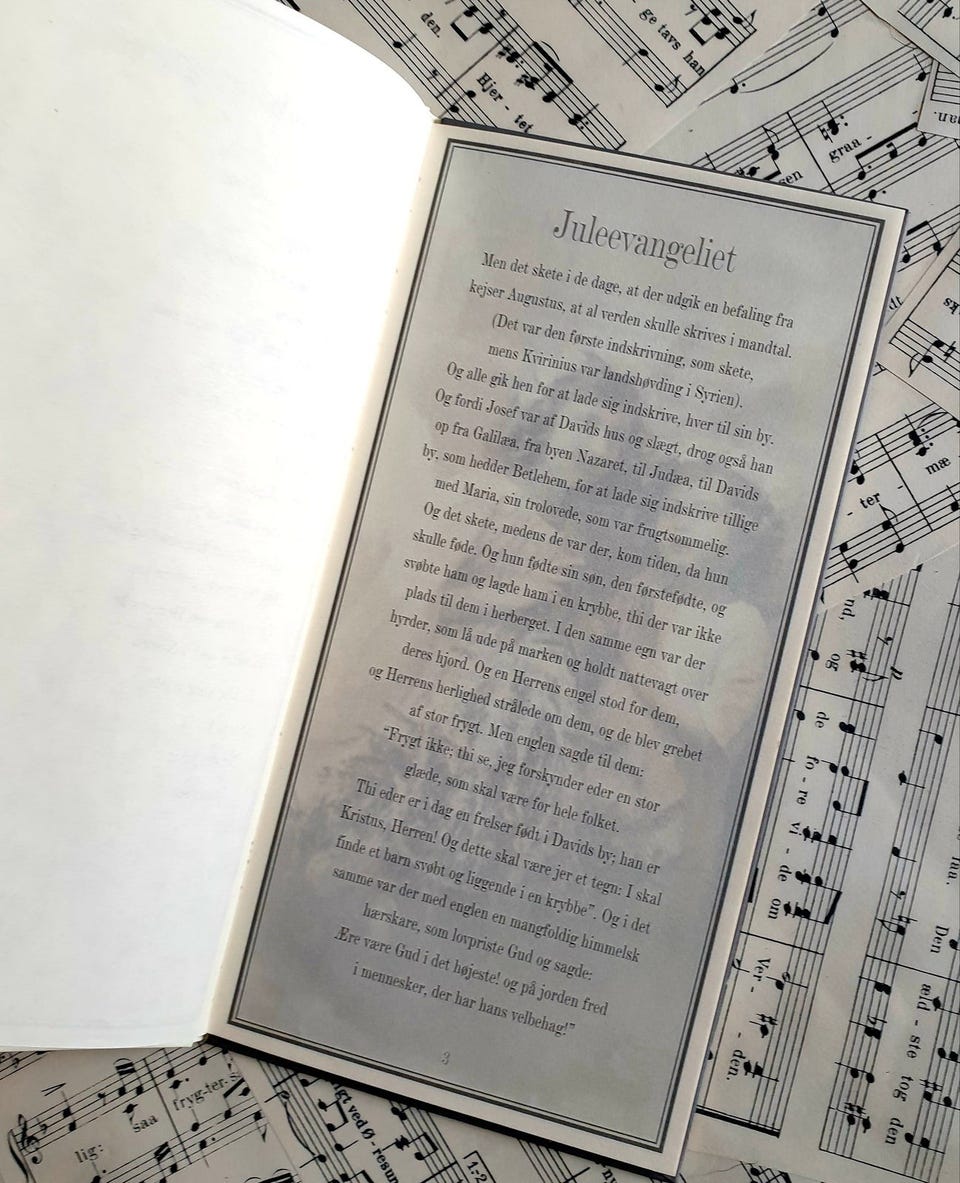 Juleevangeliet
Men det skete i de dage, at der udgik en befaling fra
kejser Augustus, at al verden skulle skrives i mandtal.
(Det var den første indskrivning, som skete,
mens Kvirinius var landshøvding i Syrien).
Og alle gik hen for at lade sig indskrive, hver til sin by.
Og fordi Josef var af Davids hus og slægt, drog også han
op fra Galilæa, fra byen Nazaret, til Judæa, til Davids
by, som hedder Betlehem, for at lade sig indskrive tillige
med Maria, sin trolovede, som var frugtsommelig.
Og det skete, medens de var der, kom tiden, da hun
skulle føde. Og hun fødte sin søn, den førstefødte, og
svøbte ham og lagde ham i en krybbe, thi der var ikke
plads til dem i herberget. I den samme egn var der
hyrder, som lå ude på marken og holdt nattevagt over
deres hjord. Og en Herrens engel stod for dem,
og Herrens herlighed strålede om dem, og de blev grebet
af stor frygt. Men englen sagde til dem:
“Frygt ikke; thi se, jeg forskynder eder en stor
glæde, som skal være for hele folket.
Thi eder er i dag en frelser født i Davids by; han er
Kristus, Herren! Og dette skal være jer et tegn: I skal
finde et barn svøbt og liggende i en krybbe”. Og i det
samme var der med englen en mangfoldig himmelsk
hærskare, som lovpriste Gud og sagde:
Ære være Gud i det højeste! og på jorden fred
i mennesker, der har hans velbehag!”
3
den.
ge tavs han
Hjer - tet
graa -
sen
mæ
- ter -
nd, og de fo - re vi - de om Ver - den.
Den æld - ste tog den
lig: saa fryg-ter
ved Ø - resun
1-2